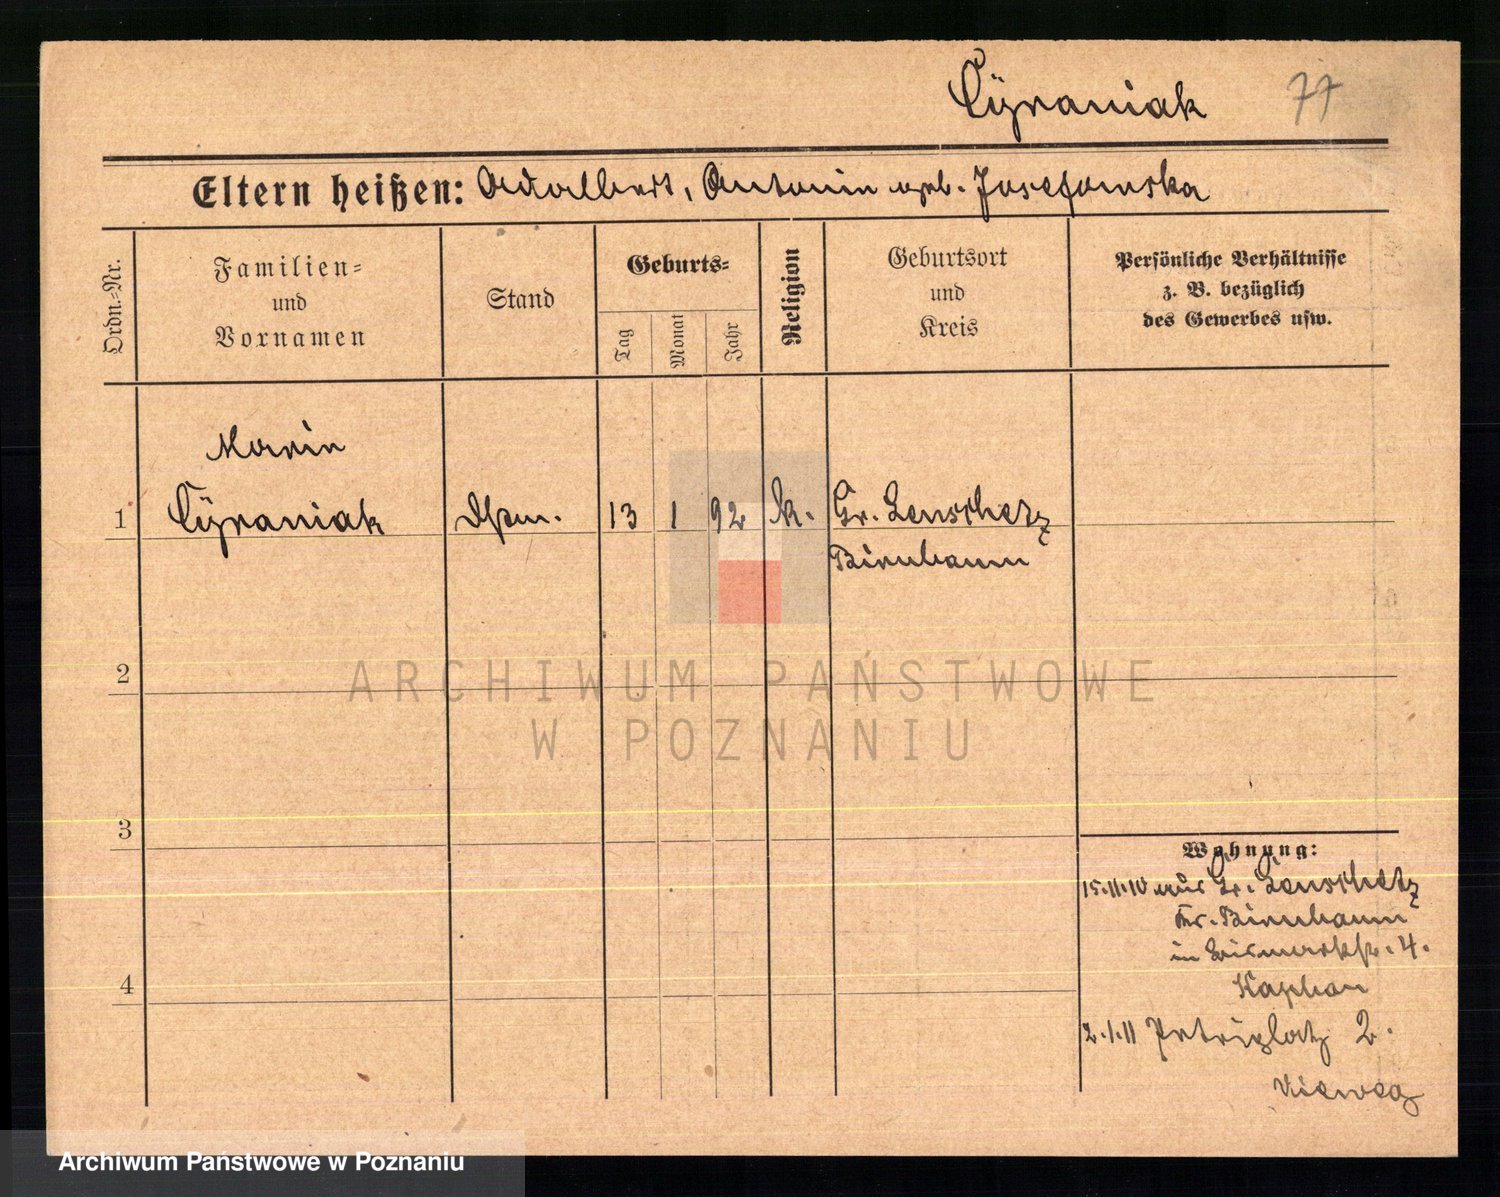 Cÿraniak 77
Eltern heißen: Adalbert, Antonie geb. Josefowska
Ordn.-Nr.
Familien-
und
Vornamen
Stand
Geburts-
Tag
Monat
Jahr
Religion
Geburtsort
und
Kreis
Persönliche Verhältnisse
z. B. bezüglich
des Gewerbes usw.
Marie
1 Cÿraniak 13 1 92 k. Gr. Lenschetz
Birnbaum
2
3
4
Wohnung:
15.11.10 aus Gr. Lenschetz
Kr. Birnbaum
in Bismarckstr. 4.
Kaphan
2.1.11 Petriplatz 2.
Vieweg
ARCHIWUM PAŃSTWOWE
W POZNANIU
Archiwum Państwowe w Poznaniu